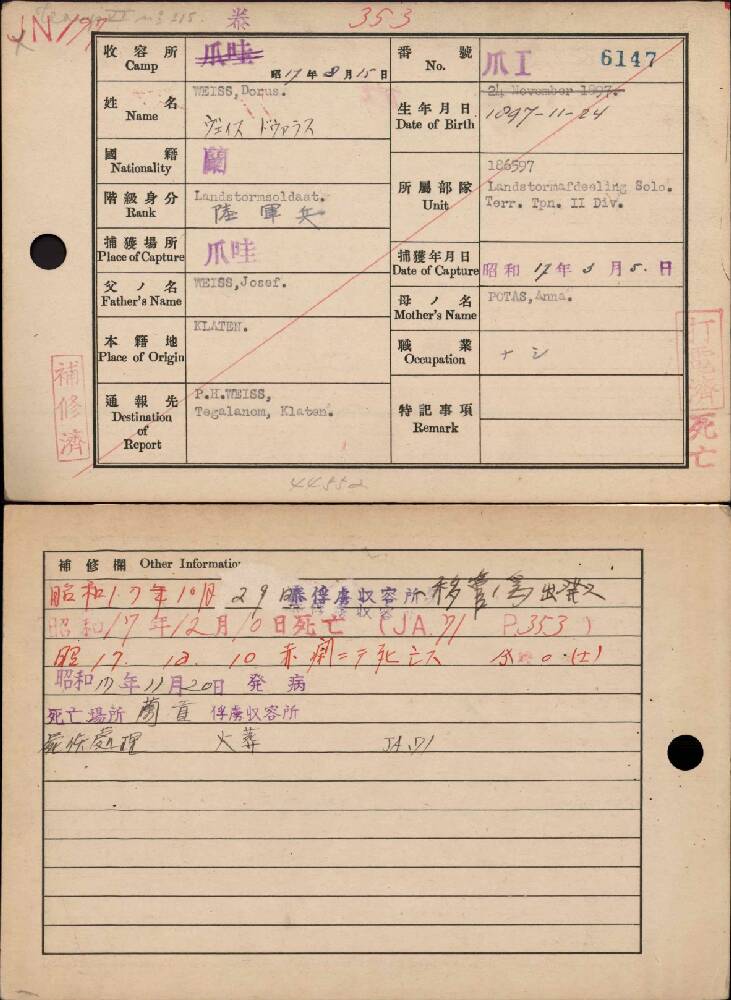 JN197
泰
353
收容所
Camp
爪哇
昭17年8月15日
番號
No.
爪I 6147
姓名
Name
WEISS,Dorus.
ヴェイス ドウァラス
生年月日
Date of Birth
24 November 1897.
1897-11-24
國籍
Nationality
蘭
階級身分
Rank
Landstormsoldaat.
陸軍兵
所屬部隊
Unit
186597
Landstormafdeeling Solo.
Terr. Tpn. II Div.
捕獲場所
Place of Capture
爪哇
捕獲年月日
Date of Capture
昭和17年3月8日
父ノ名
Father's Name
WEISS,Josef.
母ノ名
Mother's Name
POTAS,Anna.
本籍地
Place of Origin
KLATEN.
職業
Occupation
ナシ
通報先
Destination
of
Report
P.H.WEISS,
Tegalanom, Klaten.
特記事項
Remark
補修濟
打電濟
死亡
44552
補修欄 Other Information
昭和17年10月29日泰俘虜収容所移管ノ為出発ス
昭和17年12月10日死亡 (JA.71 P.353)
昭17.12.10赤痢ニテ死亡ス
昭和17年11月20日 発病
死亡場所 俘虜収容所
屍体處理 火葬 JA.71